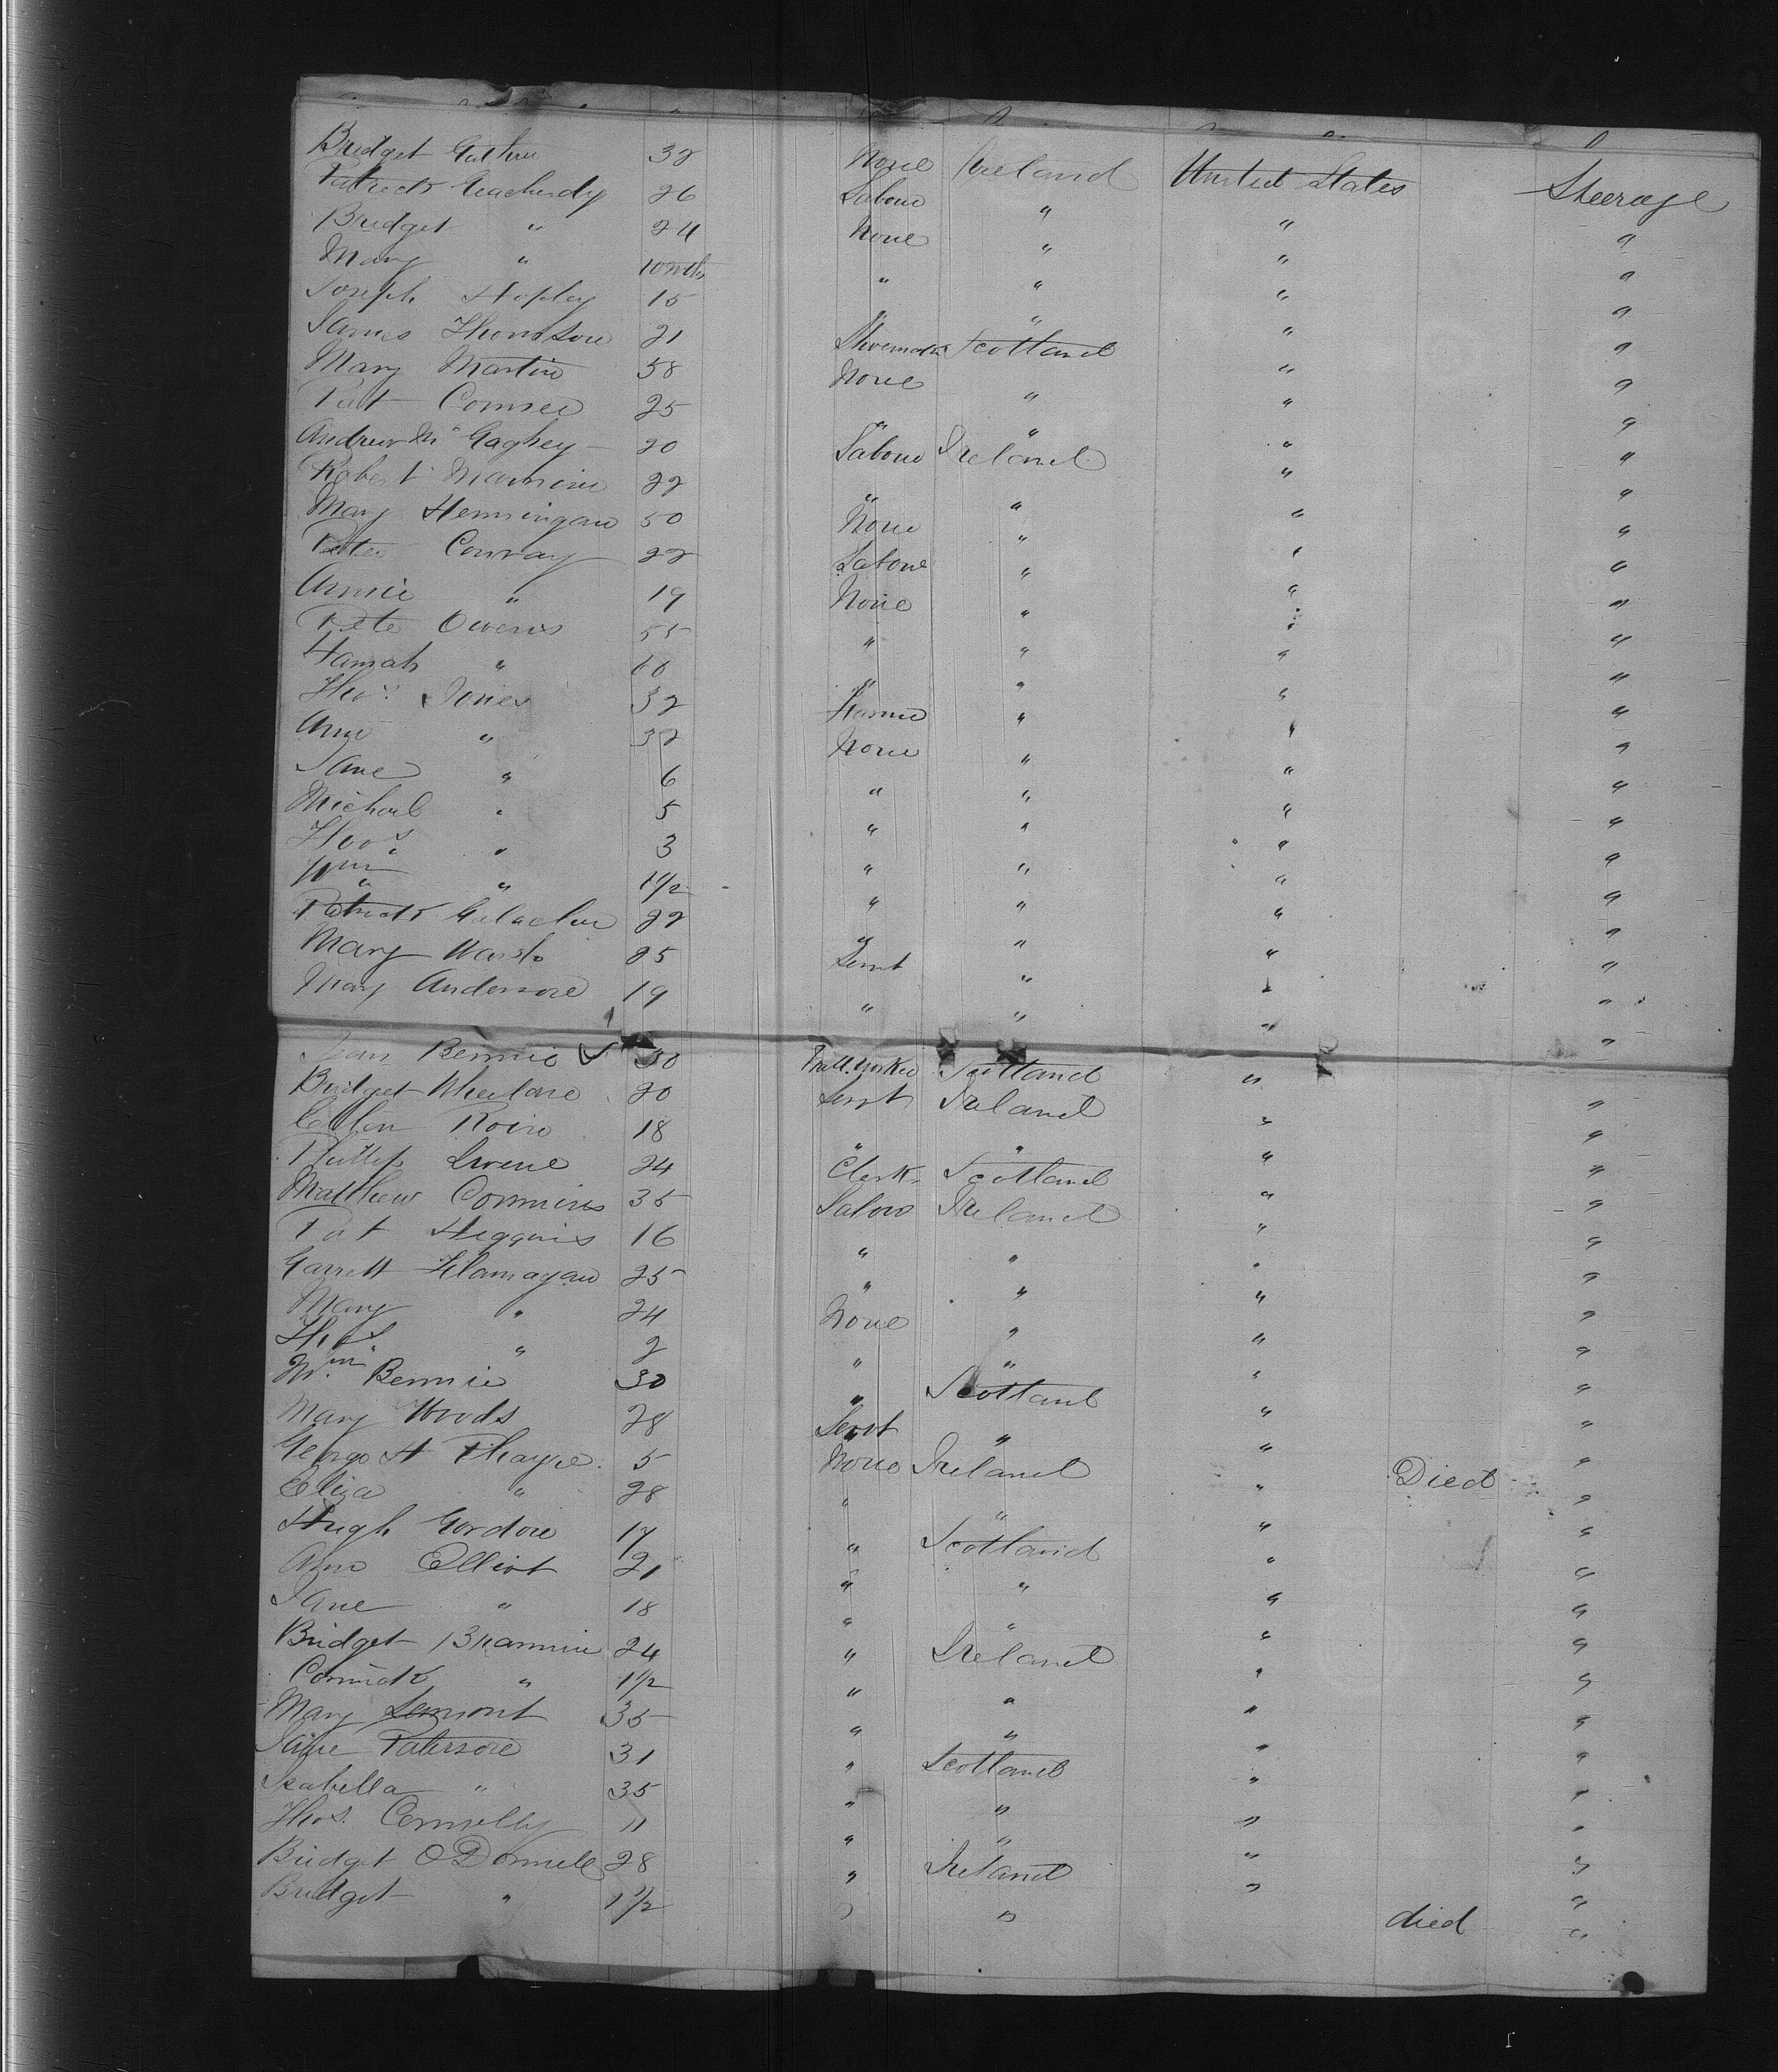 Bridget Guthrie 32 None Ireland United States Steerage
Patrick 26 Labour " " "
Bridget " 24 None " " "
Mary " 10 mths " " " "
Joseph Hopley 15 " " " "
James Thomson 21 Shoemaker Scotland " "
Mary Martin 58 None " " "
Pat 25 " " " "
Andrew Mc Gaghey 20 Labour Ireland " "
Robert 22 " " " "
Mary Henningan 50 None " " "
Peter Conway 22 Labour " " "
Annie " 19 None " " "
Peter Owens 55 " " " "
Hannah " 60 " " " "
Thos. Jones 32 Farmer " " "
Ann " 32 None " " "
Jane " 6 " " " "
Michael " 5 " " " "
Thos " 3 " " " "
Wm " 1 1/2 " " " "
Patrick Galacher 22 " " " "
Mary Walsh 25 Servt " " "
Mary Anderson 19 " " " "
Jean Bennie 30 Mill Worker Scotland " "
Bridget Wheelane 20 Servt Ireland " "
Ellen 18 " " " "
Phillip 24 Clerk Scotland " "
Matthew Commins 35 Labour Ireland " "
Pat Higgins 16 " " " "
Garrett Flannagan 25 " " " "
Mary " 24 None " " "
Thos " 2 " " " "
Wm Bennie 30 " Scotland " "
Mary Woods 28 Servt " " "
George H Thayre 5 None Ireland " Died "
Eliza " 28 " " " "
Hugh Gordon 17 " Scotland " "
Ann Elliot 21 " " " "
Jane " 18 " " " "
Bridget Brannin 24 " Ireland " "
Cormick " 1 1/2 " " " "
Mary Lemont 35 " " " "
Jane Paterson 31 " Scotland " "
Isabella " 35 " " " "
Thos. Connelly 11 " " " "
Bridget O Donnell 28 " Ireland " "
Bridget " 1 1/2 " " " died "